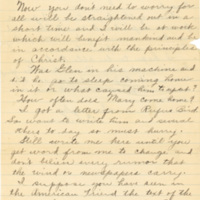 Now you don't need to worry for
all will be straightened out in a
short time and I will be at work
which will benefit mankind and be
in accordance with the principles
of Christ.
Was Glen on his machine and
did he go to sleep coming home
in it or what caused him to
How often does Mary come home?
I got a letter from Rufus
So want to write him and several
others to day so must hurry.
Still write me here until you
get word from me to change and
don't believe every rumor that
the wind or newspapers carry.
I suppose you have seen in
the American Friend the test of the